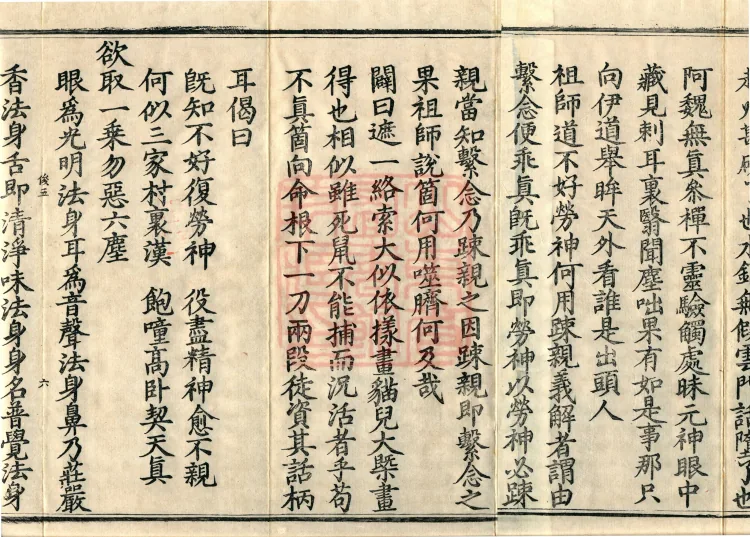 阿魏無眞叅禪不靈驗觸處昧元神眼中
藏見刺耳裏翳聞塵咄果有如是事那只
向伊道舉眸天外看誰是出頭人
祖師道不好勞神何用踈親義解者謂由
繫念便乖眞旣乖眞即勞神以勞神必踈
親當知繫念乃踈親之因踈親即繫念之
果祖師說箇何用噬臍何及哉
闢曰遮一絡索大似依樣畫貓兒大槩畫
得也相似雖死鼠不能捕而況活者乎苟
不眞箇向命根下一刀兩段徒資其話柄
耳偈曰
旣知不好復勞神 役盡精神愈不親
何似三家村裏漢 飽噇高卧契天眞
欲取一乘勿惡六塵
眼爲光明法身耳爲音聲法身鼻乃莊嚴
俊五 六
香法身舌即清淨味法身身名普覺法身